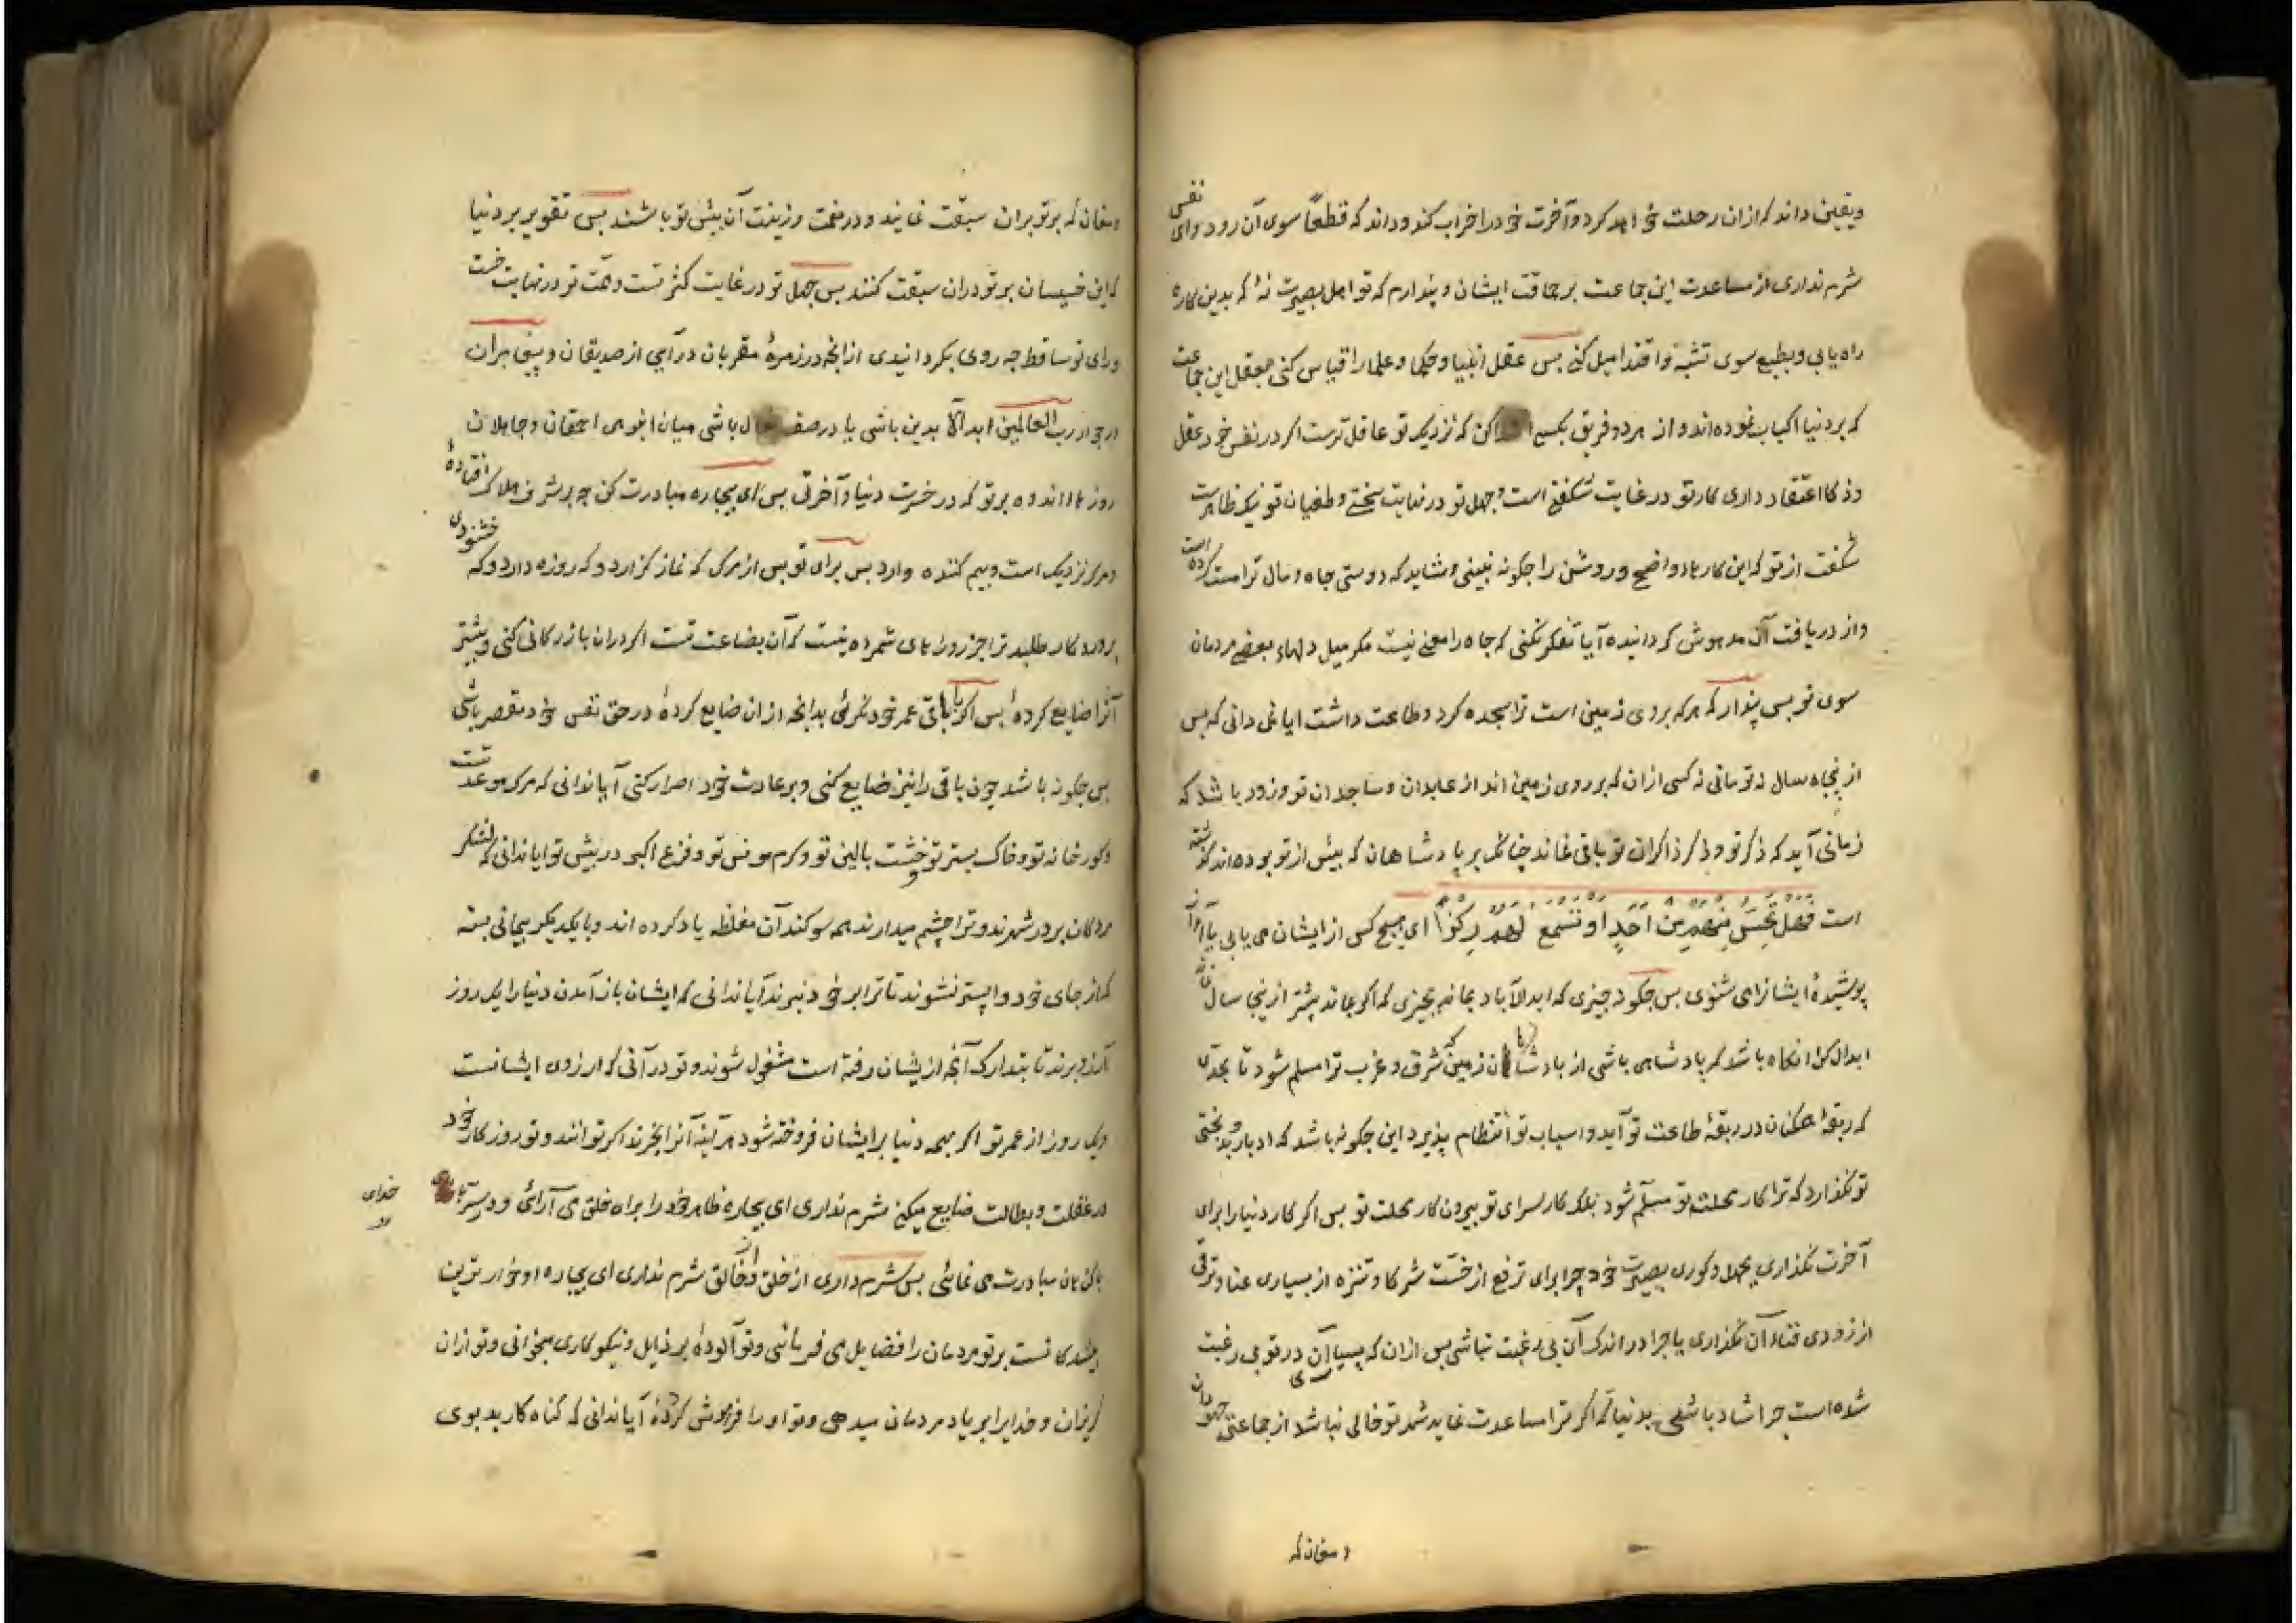 ویقین داند که ازان رحلت خواهد کرد وآخرت خود را خراب کند وداند که قطعًا سوی آن رود وای نفس
شرم نداری از مساعدت این جماعت بر حماقت ایشان وپندارم که تو اهل بصیرت نهٔ که بدین کارها
راه یابی وبطبع سوی تشبّه واقتدا میل کنی بس عقل انبیا وحکما وعلما را قیاس کنی بعقل این جماعت
که بر دنیا اکباب نموده اند واز هر دو فریق بکسی اقتدا کن که نزدیک تو عاقل ترست اکر در نفس خود عقل
وذکا اعتقاد داری کار تو در غایت شکفتی است وجهل تو در نهایت سختی وطغیان تو نیک ظاهرست
شکفت از تو که این کارهاء واضح وروشن را چکونه نبینی وشاید که دوستی جاه ومال ترا مست کرده است
واز دریافت آن مدهوش کردانیده آیا تفکر نکنی که جاه را معنی نیست مکر میل دلهاء بعضی مردمان
سوی تو بس پندار که هرکه بر روی زمین است ترا سجده کرد وطاعت داشت ایا نمی دانی که بس
از پنجاه سال نه تو مانی نه کسی ازان که بر روی زمین اند از عابدان وساجدان تو وزود باشد که
زمانی آید که ذکر تو وذکر ذاکران تو باقی نماند چنانکه بر پادشاهان که بیش از تو بوده اند کذشته
است فَهَلْ تُحِسُّ مِنْهُم مِنْ اَحَدٍ اَو تَسْمَعُ لَهُم رِكْزًا ای هیچ کس از ایشان می یابی یا آواز
پوشیدهٔ ایشان را می شنوی بس چکونه چیزی که ابد الآباد بماند بچیزی که اکر بماند بیشتر از پنجاه سال نماند
ابدال کرا انکاه باشد که پادشاهی باشی از پادشاهان زمین که شرق وغرب ترا مسلم شود تا بحدّی
که رقبهٔ همکنان در ربقهٔ طاعت تو آید واسباب تو انتظام پذیرد این چکونه باشد که ادبار وبدبختی
تو نکذارد که ترا کار محلت تو مسلّم شود بلکه کار سرای تو بیرون کار محلت تو بس اکر کار دنیا را برای
آخرت نکذاری بجهل وکوری بصیرت خود چرا برای ترفع از خسّت شرکا وتنزه از بسیاری عنا وترقی
از زودی فناء آن نکذاری یا چرا در اندک آن بی رغبت نباشی بس ازان که بسیاری آن در تو بی رغبت
شده است چرا شاد باشی بدنیا که اکر ترا مساعدت نماید شهر تو خالی نباشد از جماعتی جهودان
ومغان که
ومغان که بر تو بران سبقت نمایند ودر نعمت وزینت آن بیش تو باشند بس تفو بر دنیا
که این خسیسان بر تو دران سبقت کنند بس جهل تو در غایت کثرتست وهمّت تو در نهایت خسّت
ورای تو ساقط چه روی بکردانیدی از انچه در زمرهٔ مقربان درآیی از صدیقان وپیغامبران
در جوار رب العالمین ابد الآبدین باشی یا در صف نعال باشی میان انبوهی احمقان وجاهلان
روزها اندوه بر تو که در خسرت دنیا وآخرتی بس ای بیچاره مبادرت کن چه بر شرف هلاک افتادهٔ
ومرک نزدیک است وبیم کننده وارد بس برای تو بس از مرک که نماز کزارد وکه روزه دارد وکه خشنودی
پروردکار طلبد ترا جز روزهای شمرده نیست که آن بضاعت تست اکر دران بازرکانی کنی وبیشتر
آنرا ضایع کردهٔ بس اکر با باقی عمر خود نکرئی بدانچه ازان ضایع کردهٔ در حق نفس خود مقصر باشی
بس چکونه باشد چون باقی را نیز ضایع کنی وبر عادت خود اصرار کنی آیا ندانی که مرک موعد تست
وکور خانه تو وخاک بستر تو وخشت بالین تو وکرم مونس تو وفزع اکبر در بیش تو ایا ندانی که لشکر
مردکان بر در شهرند وترا چشم میدارند همه سوکندان مغلظه یاد کرده اند وبا یکدیکر پیمانی بسته
که از جای خود واپستر نشوند تا ترا بر خود نبرند آیا ندانی که ایشان باز آمدن دنیا را یک روز
آرزو برند تا بتدارک آنچه از یشان رفته است مشغول شوند وتو در آنی که ارزوی ایشانست
ویک روز از عمر تو اکر بهمه دنیا بر ایشان فروخته شود هر آینه آنرا بخرند اکر توانند وتو روزکار خود
در غفلت وبطالت ضایع میکنی شرم نداری ای بیچاره ظاهر خود را براه خلق می آرائی ودر سرّ با خدای
باکناهان مبادرت می نمائی بس شرم داری از خلق واز خالق شرم نداری ای بیچاره او خوارترین
بینندکانست بر تو مردمان را فضایل می فرمائی وتو آلودهٔ برذایل ونیکوکاری میخوانی وتو ازان
کریزان وخدایرا بر یاد مردمان میدهی وتو او را فراموش کردهٔ آیا ندانی که کناه کار بدبوی
خدای